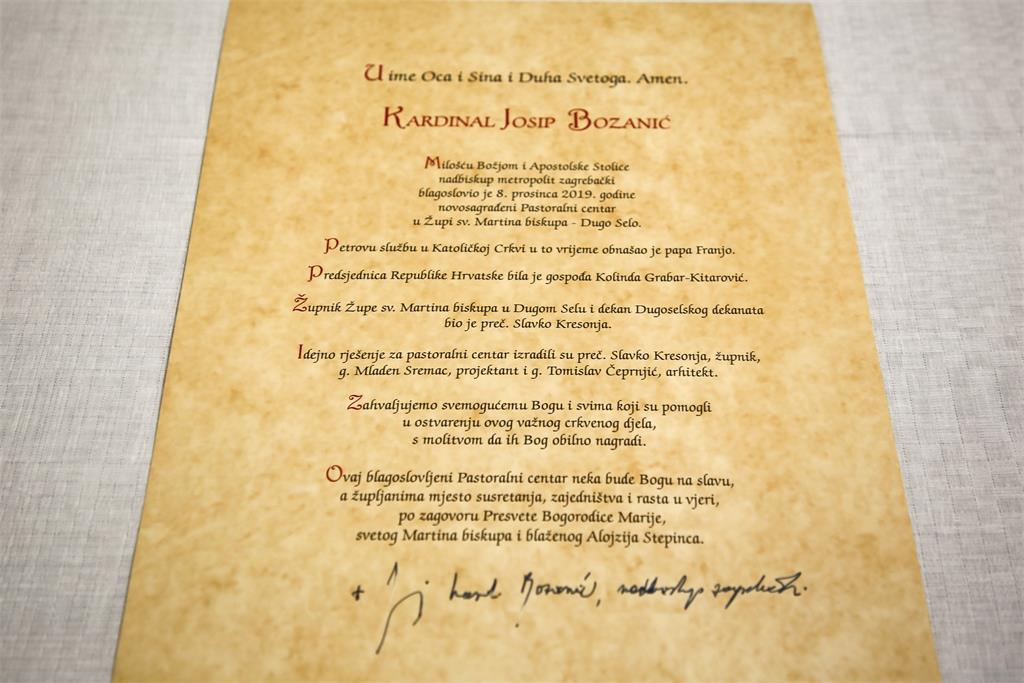 U ime Oca i Sina i Duha Svetoga. Amen.
Kardinal Josip Bozanić
Milošću Božjom i Apostolske Stolice
nadbiskup metropolit zagrebački
blagoslovio je 8. prosinca 2019. godine
novosagrađeni Pastoralni centar
u Župi sv. Martina biskupa - Dugo Selo.
Petrovu službu u Katoličkoj Crkvi u to vrijeme obnašao je papa Franjo.
Predsjednica Republike Hrvatske bila je gospođa Kolinda Grabar-Kitarović.
Župnik Župe sv. Martina biskupa u Dugom Selu i dekan Dugoselskog dekanata
bio je preč. Slavko Kresonja.
Idejno rješenje za pastoralni centar izradili su preč. Slavko Kresonja, župnik,
g. Mladen Sremac, projektant i g. Tomislav Čeprnjić, arhitekt.
Zahvaljujemo svemogućemu Bogu i svima koji su pomogli
u ostvarenju ovog važnog crkvenog djela,
s molitvom da ih Bog obilno nagradi.
Ovaj blagoslovljeni Pastoralni centar neka bude Bogu na slavu,
a župljanima mjesto susretanja, zajedništva i rasta u vjeri,
po zagovoru Presvete Bogorodice Marije,
svetog Martina biskupa i blaženog Alojzija Stepinca.
+ kard. Bozanić, nadbiskup zagrebački